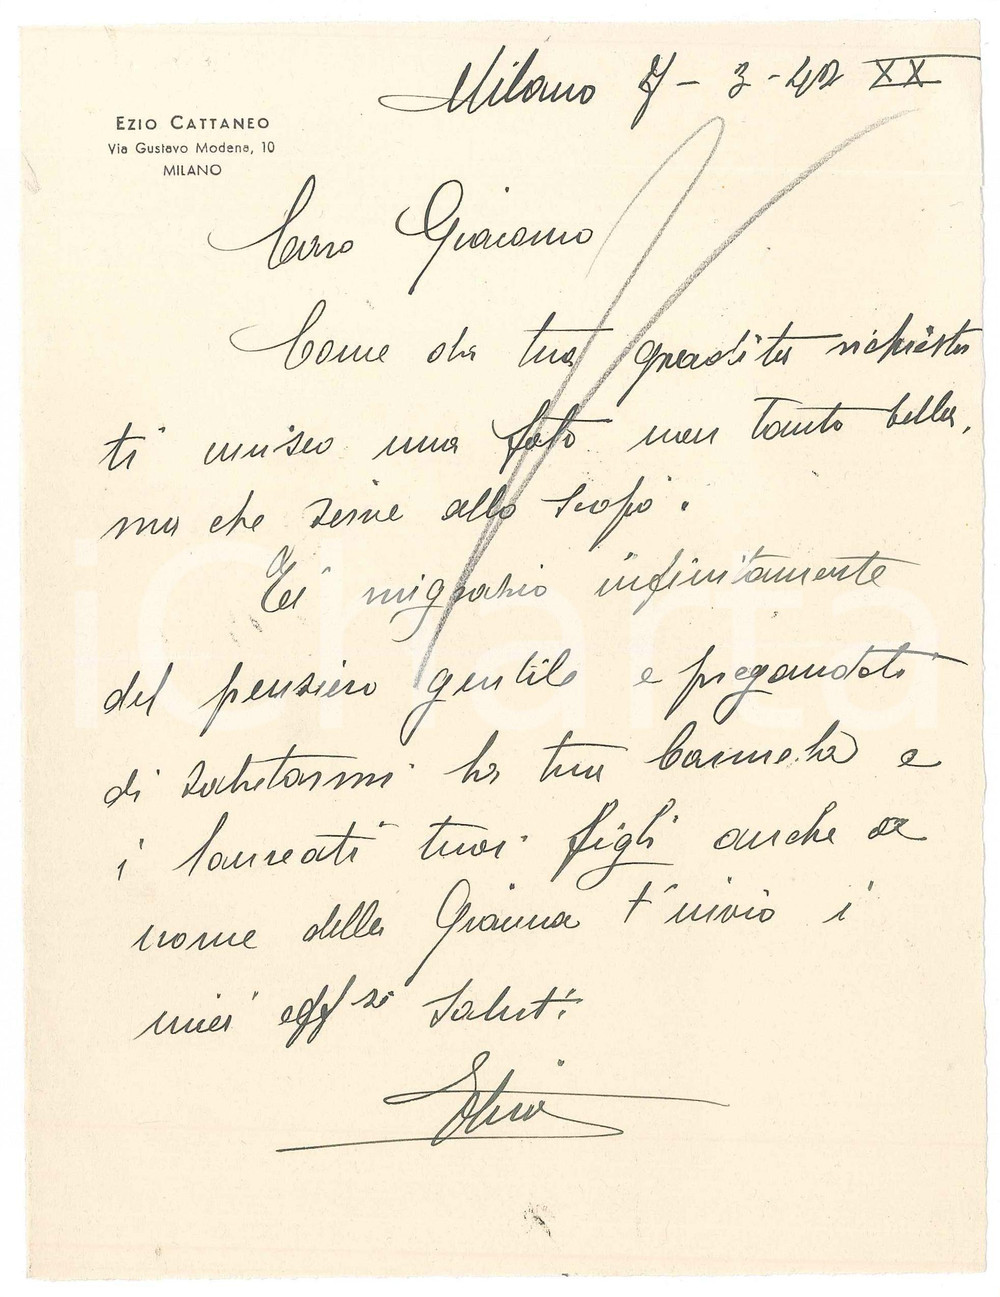 Milano 7 - 3 - 42 XX
EZIO CATTANEO
Via Gustavo Modena, 10
MILANO
Caro Giacomo
Come da tua gradita richiesta
ti unisco una foto non tanto bella,
ma che serve allo scopo.
Ti ringrazio infinitamente
del pensiero gentile e pregandoti
di salutarmi la tua e
i laureati tuoi figli anche a
nome della Gianna t'invio i
miei aff.si saluti
Ezio
iCharta